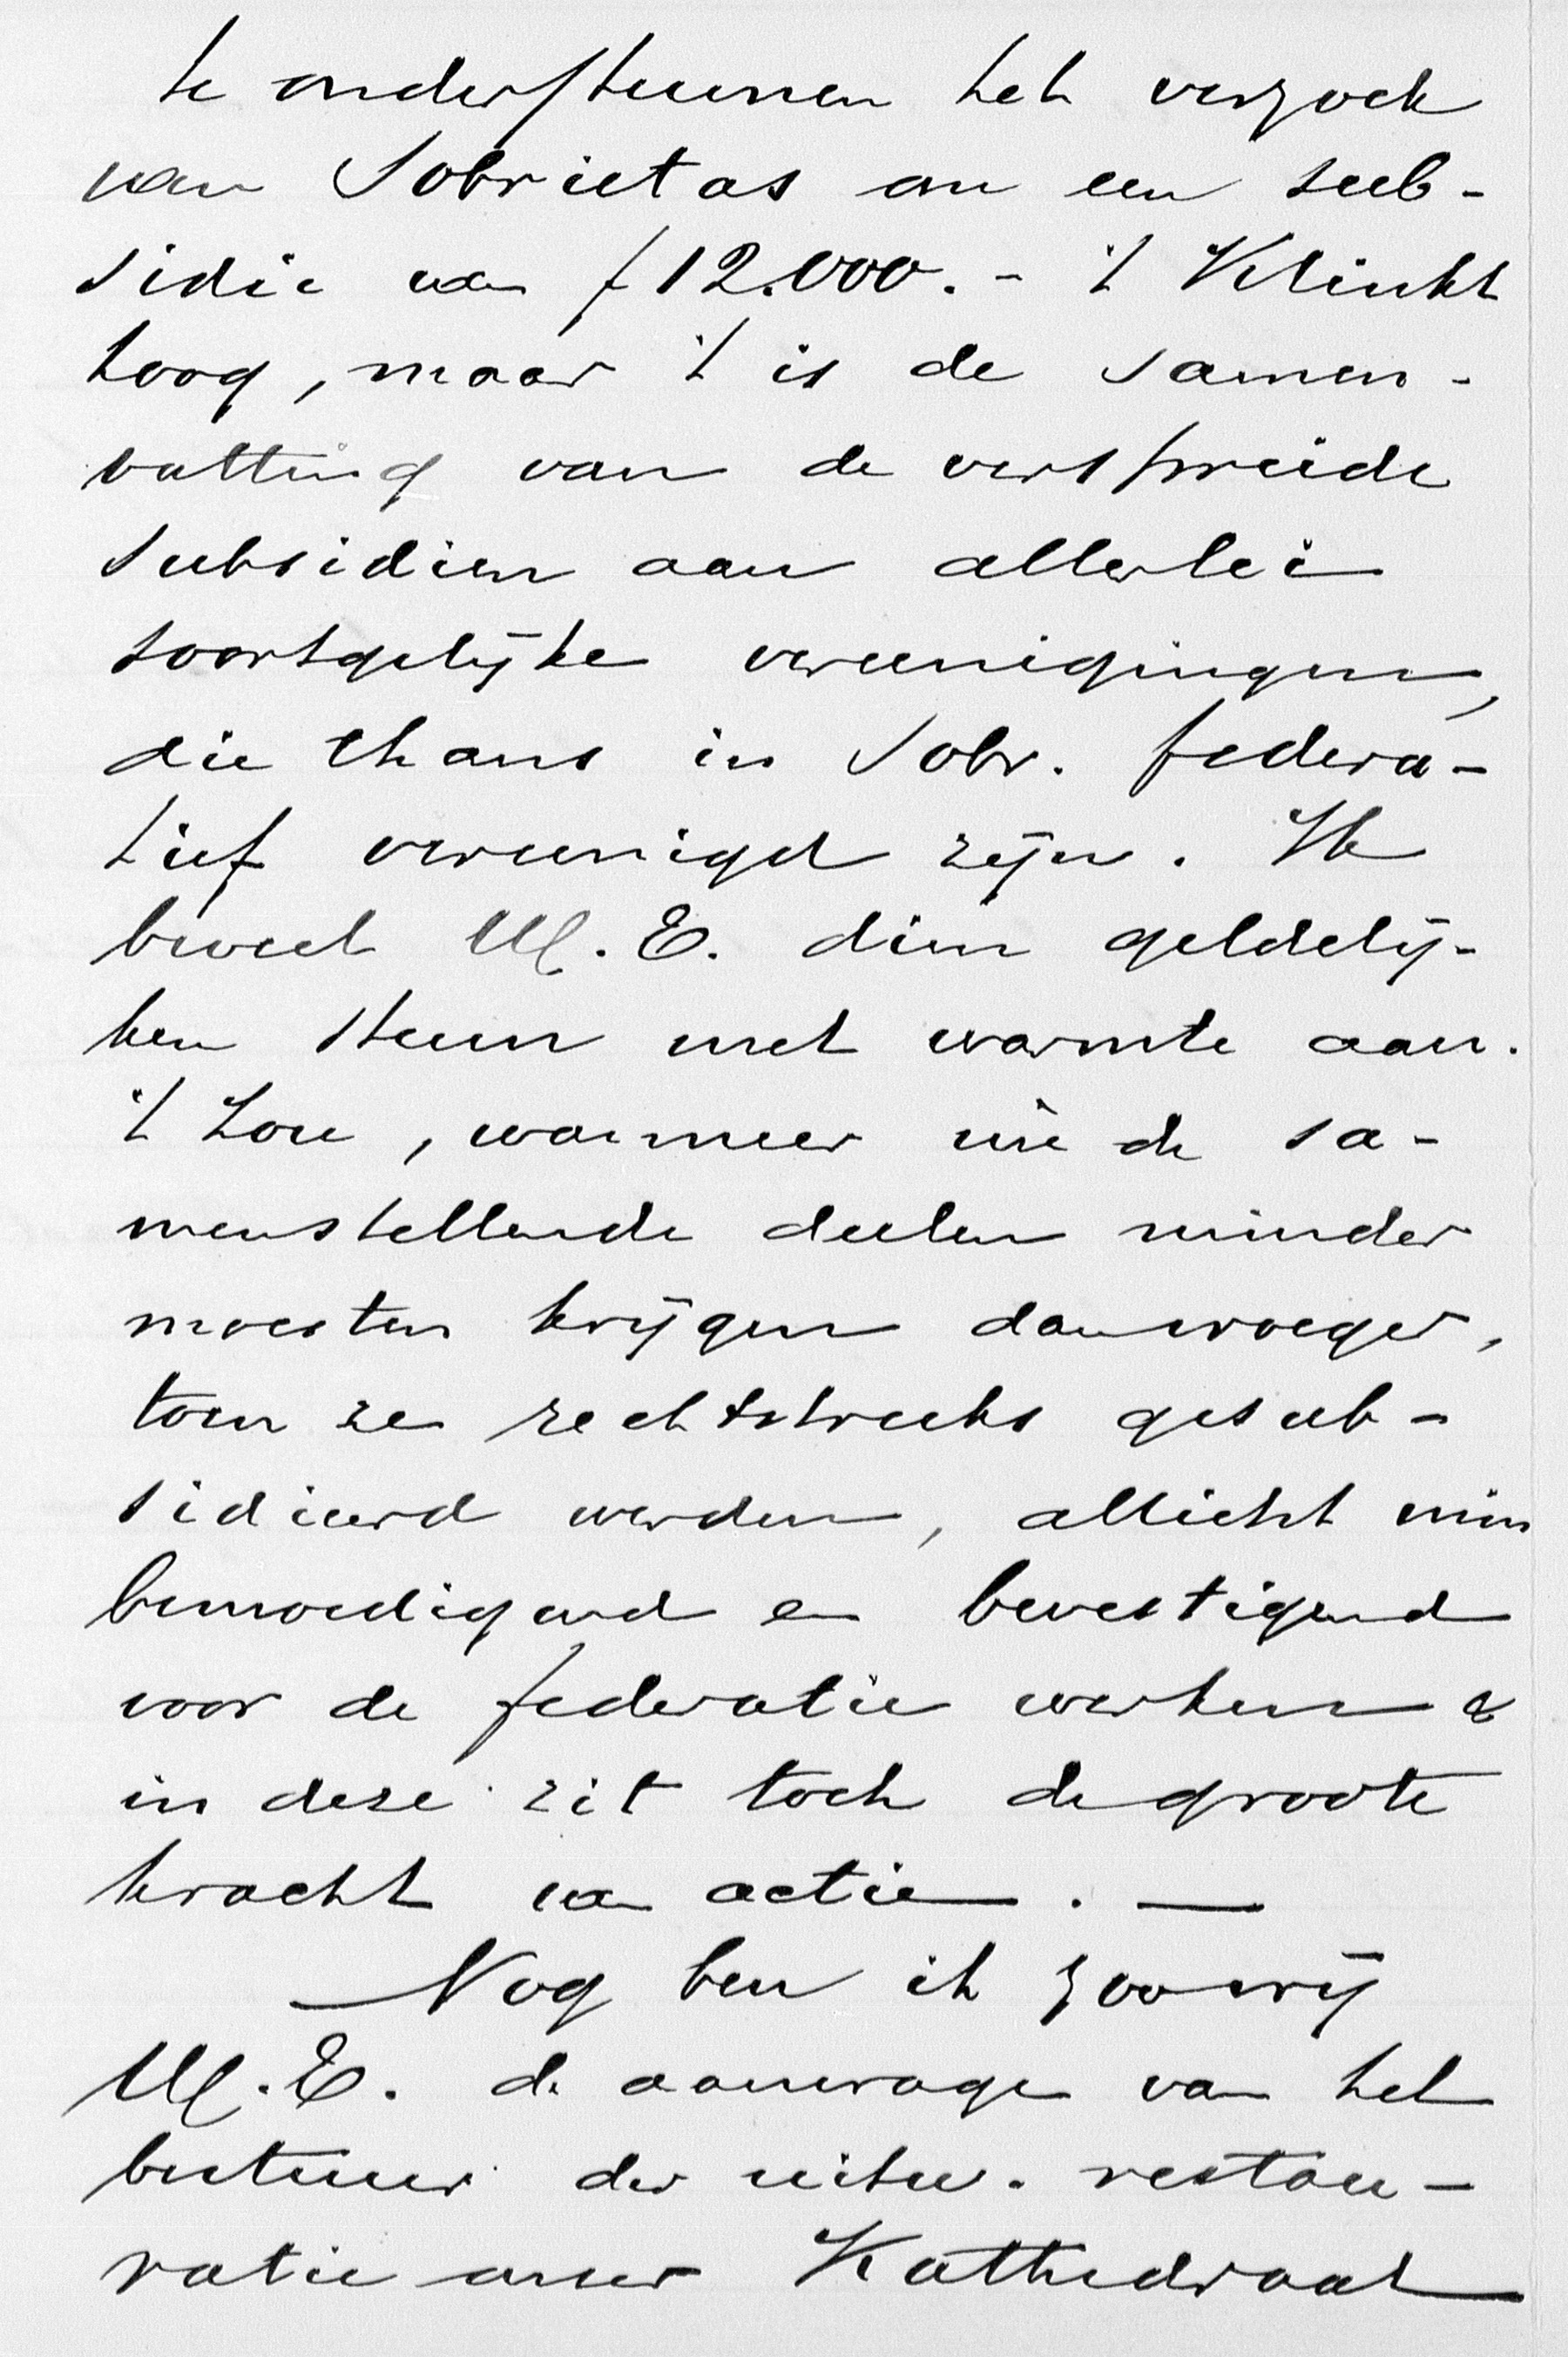 te ondersteunen het verzoek
van Sobrietas om een sub-
sidie van f 12.000.- 't Klinkt
hoog, maar 't is de samen-
vatting van de verspreide
subsidien aan allerlei
soortgelijke vereenigingen,
die thans in Sobr. federa-
tief vereenigd zijn. Ik
beveel U.E. dien geldelij-
ken steun met warmte aan.
't Zou, wanneer nu de sa-
menstellende deelen minder
moesten krijgen dan vroeger,
toen ze rechtstreeks gesub-
sidieerd werden, allicht min
bemoedigend en bevestigend
voor de federatie werken &
in deze zit toch de groote
kracht van actie. —
Nog ben ik zoo vrij
U.E. de aanvrage van het
bestuur der uitw. restau-
ratie onzer Kathedraal